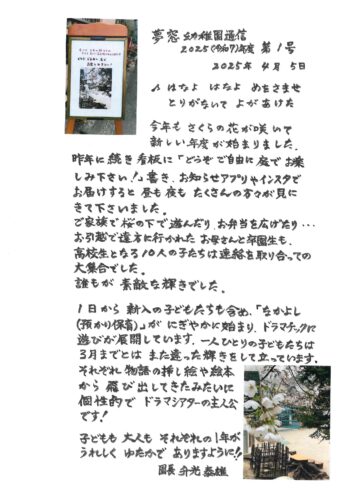 夢窓幼稚園通信
2025(令和7)年度 第1号
2025年 4月 5日
♪はなよ はなよ めをさませ
とりがないて よがあけた
今年も さくらの花が咲いて
新しい年度が始まりました。
昨年に続き看板に「どうぞご自由に庭でお楽
しみ下さい!」書き、お知らせアプリやインスタで
お届けすると 昼も夜も たくさんの方々が見に
きて下さいました。
ご家族で桜の下で遊んだり、お弁当を広げたり…
お引越で遠方に行かれた お母さんと卒園生も、
高校生となる10人の子たちは連絡を取り合っての
大集合でした。
誰もが 素敵な輝きでした。
1日から 新入の子どもたちも含め、「なかよし
(預かり保育)」が にぎやかに始まり、ドラマチックに
遊びが展開しています。一人ひとりの子どもたちは
3月までとは また違った輝きをして立っています。
それぞれ 物語の挿し絵や絵本
から 飛び出してきたみたいに
個性的で ドラマシアターの主人公
です!
子どもも 大人も それぞれの1年が
うれしく ゆたかで ありますように!!
園長 片光 泰雄